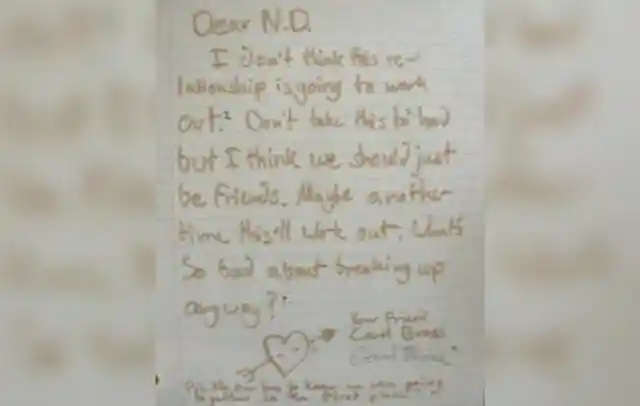 Dear N.D.
I don't think this re-
lationship is going to work
out. Don't take this to bad
but I think we should just
be friends. Maybe another
time this'll work out. What's
so bad about breaking up
anyway?
Your friend
to know we were going
together in the first place